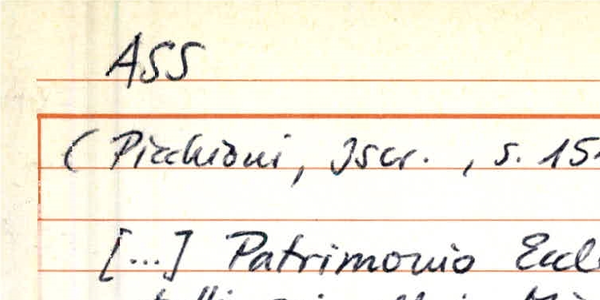 ASS
(Picchioni, Iscr., s. 15
[...] Patrimonio Eccl